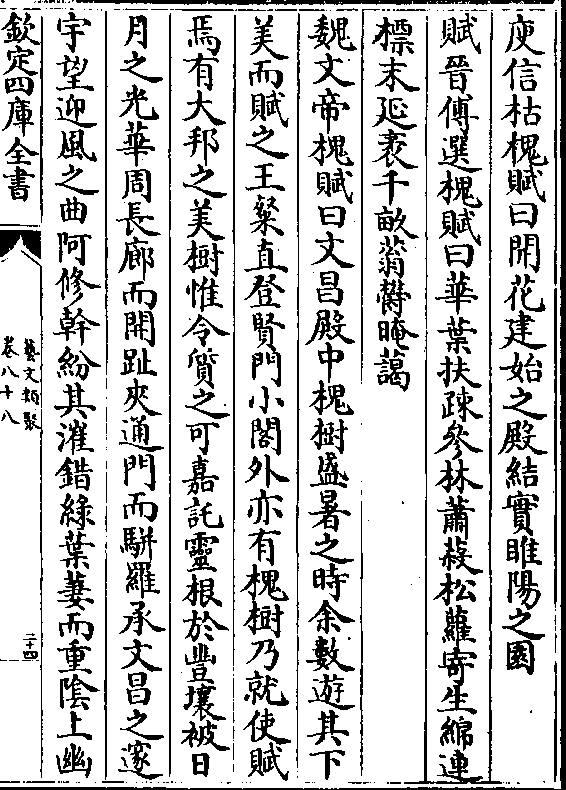 庾信枯槐賦曰開花建始之殿結實睢陽之園
賦晉傅選槐賦曰華葉扶疎參林蕭蔱松蘿寄生綿連
標末延袤千畝蓊鬱晻藹
魏文帝槐賦曰文昌殿中槐樹盛暑之時余數遊其下
美而賦之王粲直登賢門小閣外亦有槐樹乃就使賦
焉有大邦之美樹惟令質之可嘉託靈根於豐壤被日
月之光華周長廊而開趾夾通門而駢羅承文昌之邃
宇望迎風之曲阿修幹紛其漼錯綠葉萋而重陰上幽
欽定四庫全書
藝文類聚
卷八十八
二十四